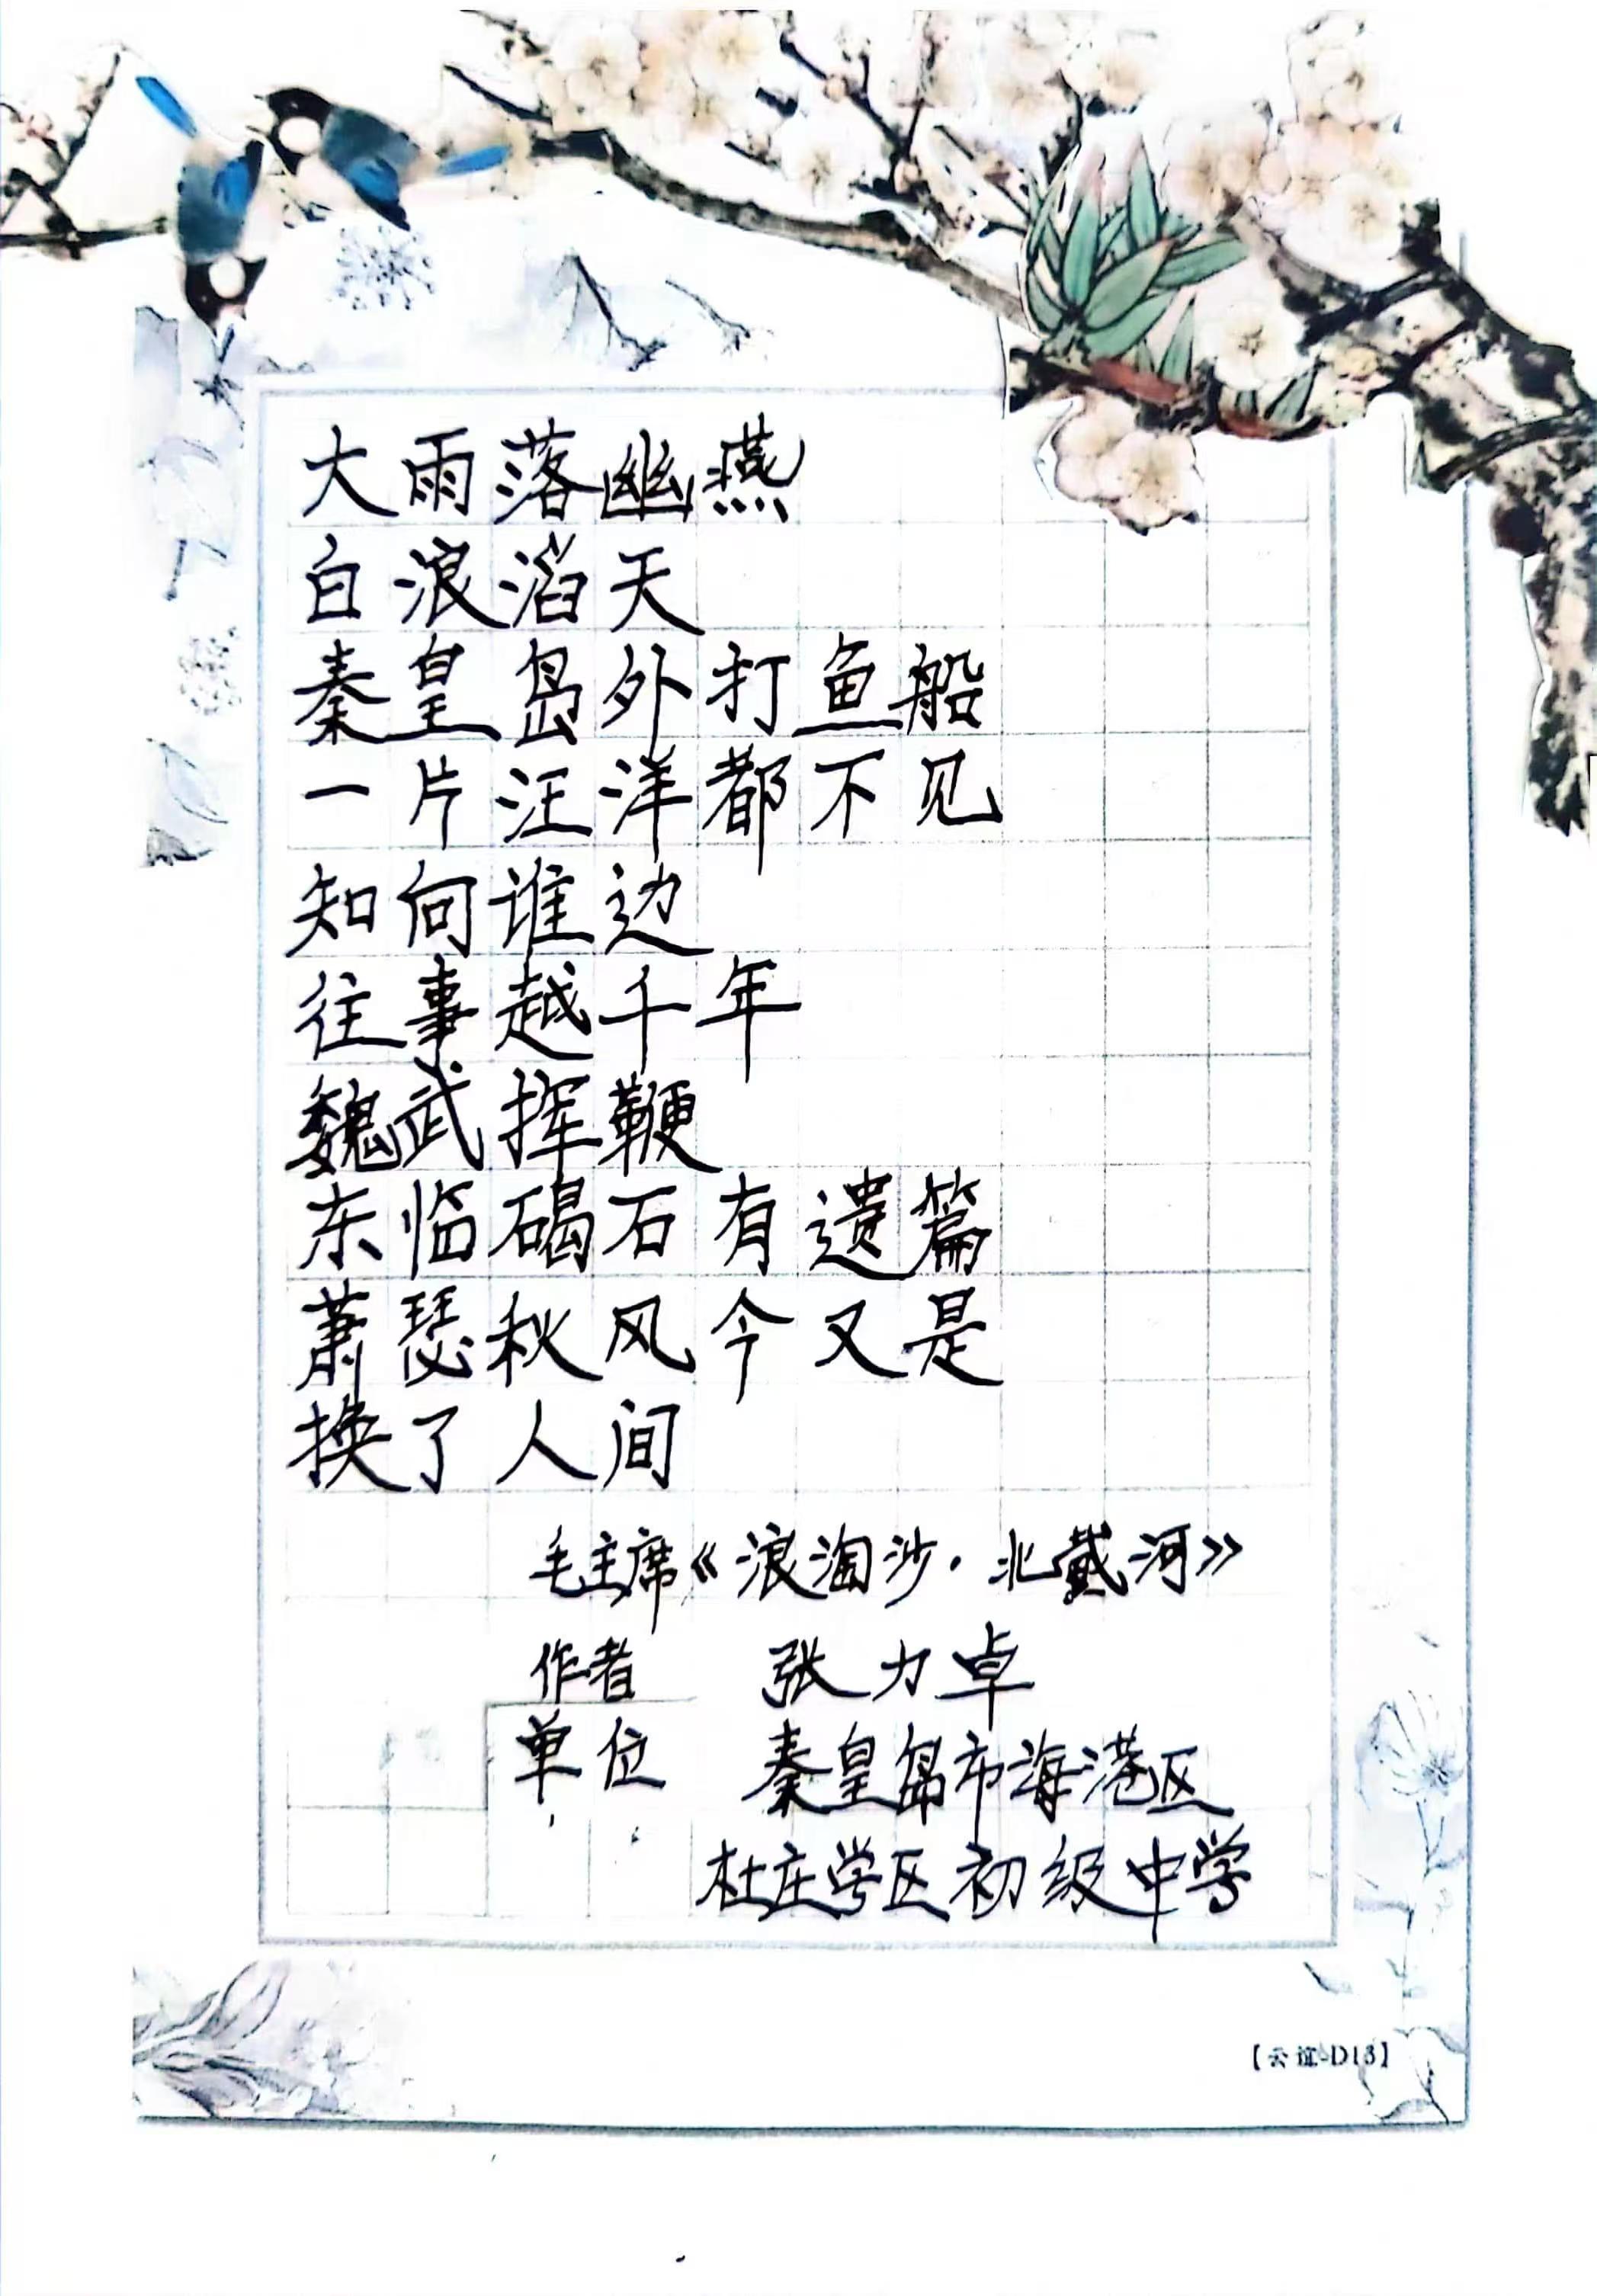 大雨落幽燕
白浪滔天
秦皇岛外打鱼船
一片汪洋都不见
知向谁边
往事越千年
魏武挥鞭
东临碣石有遗篇
萧瑟秋风今又是
换了人间
毛主席《浪淘沙·北戴河》
作者 张力卓
单位 秦皇岛市海港区
杜庄学区初级中学
【云谊-D13】